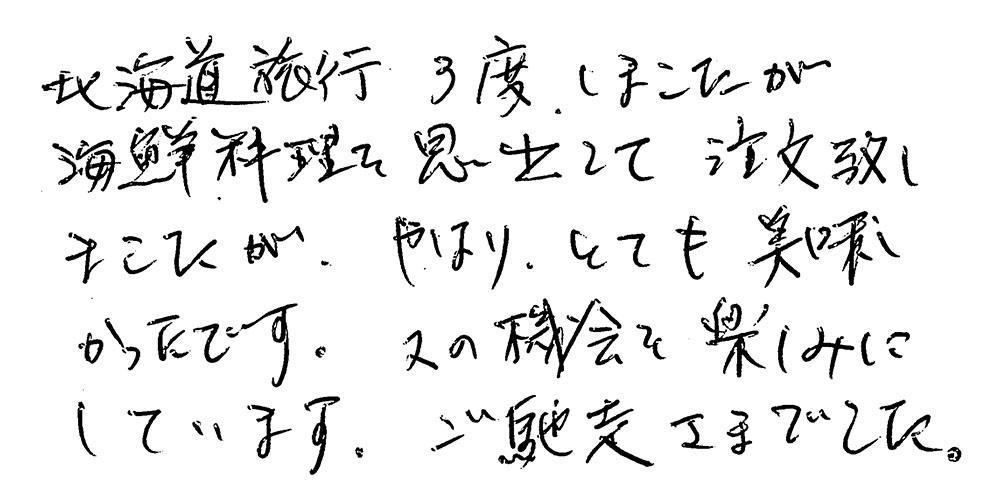 北海道旅行 3度、しましたが
海鮮料理を思い出して 注文致し
ましたが、やはり、とても美味し
かったです。又の機会を楽しみに
しています。ご馳走さまでした。